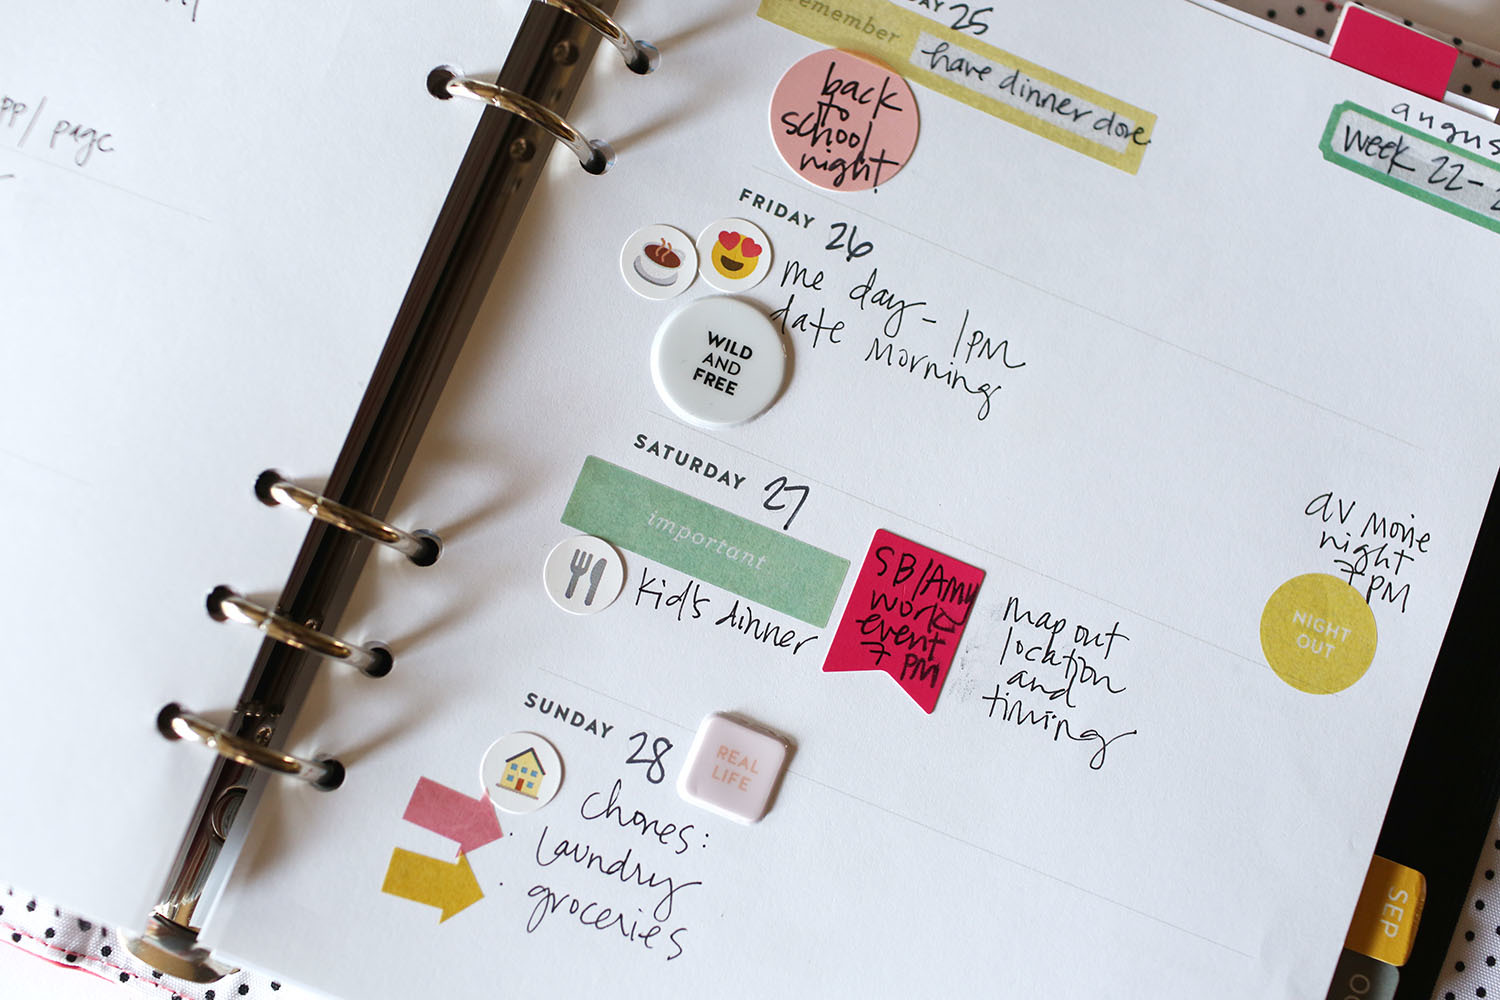 page
25
remember
have dinner done
back
to
school
night!
FRIDAY 26
me day - 1PM
date morning
WILD
AND
FREE
august
week 22-
SATURDAY 27
important
kid's dinner
SB/Amy
work
event
7 PM
map out
location
and
timing
av movie
night
7 PM
NIGHT
OUT
SUNDAY 28
REAL
LIFE
chores:
· laundry
· groceries
SEP